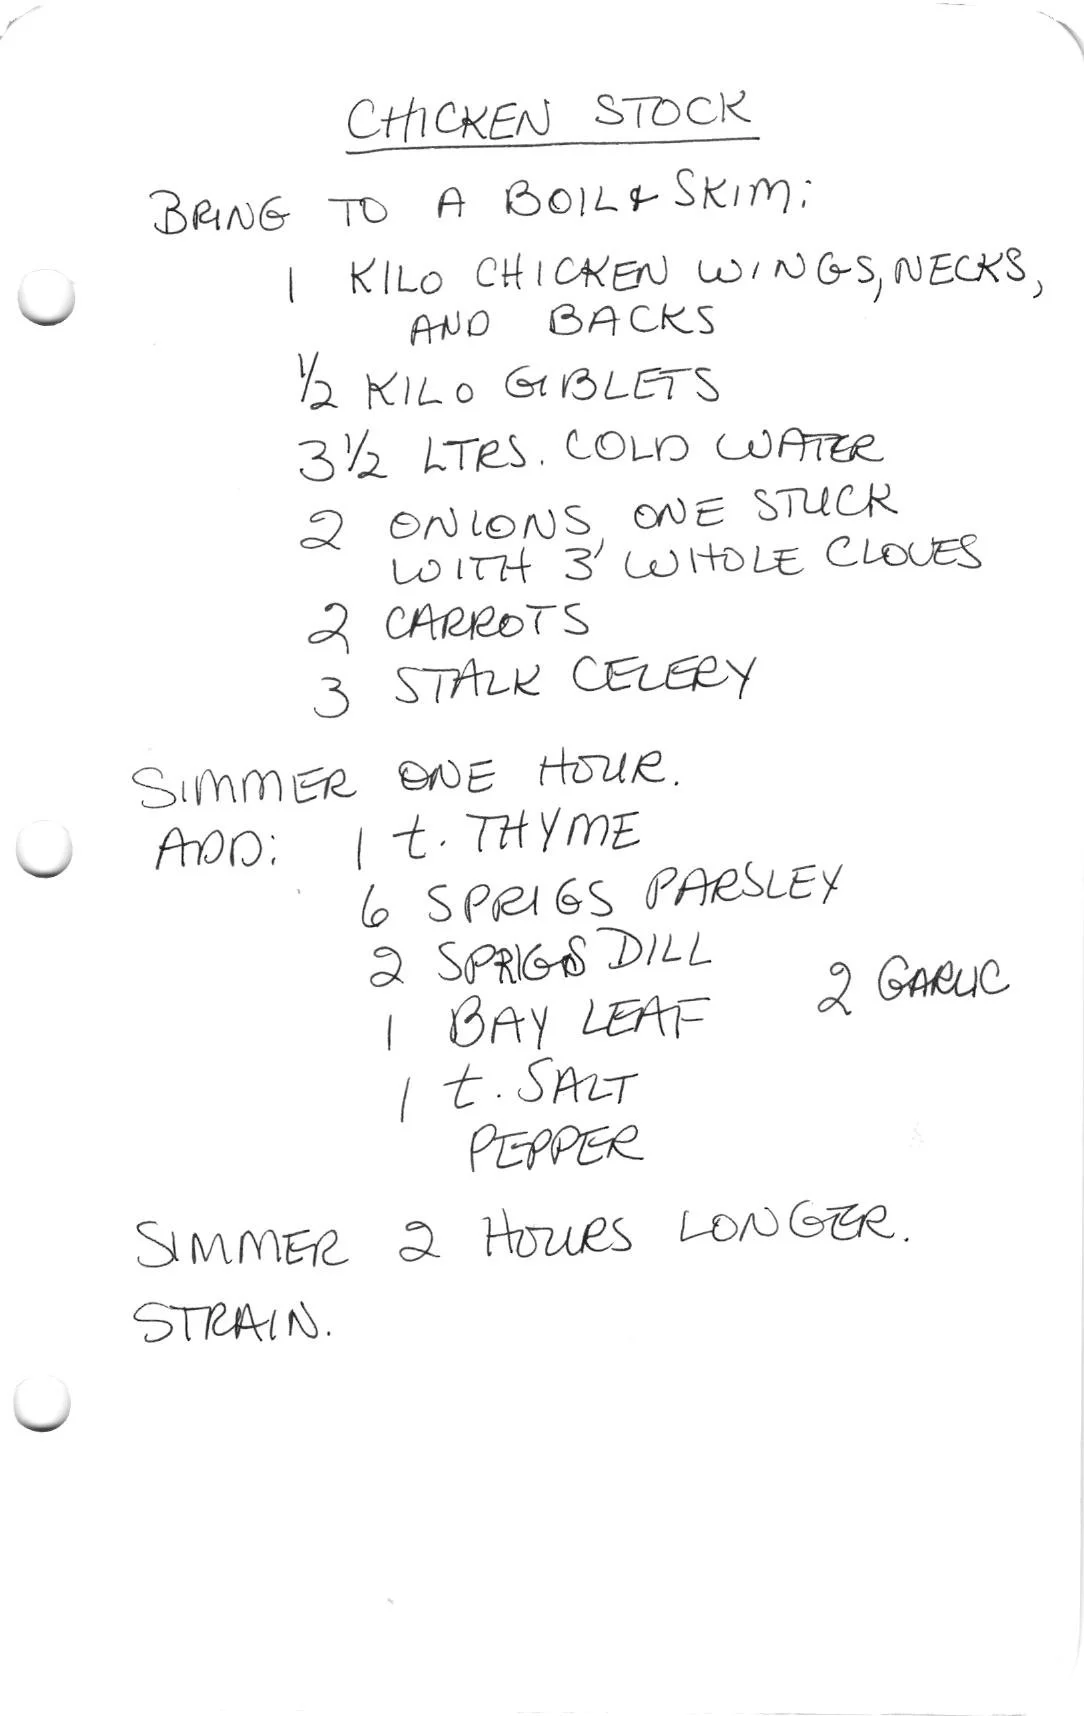 CHICKEN STOCK
BRING TO A BOIL & SKIM:
1 KILO CHICKEN WINGS, NECKS,
AND BACKS
1/2 KILO GIBLETS
3 1/2 LTRS. COLD WATER
2 ONIONS, ONE STUCK
WITH 3 WHOLE CLOVES
2 CARROTS
3 STALK CELERY
SIMMER ONE HOUR.
ADD: 1 t. THYME
6 SPRIGS PARSLEY
2 SPRIGS DILL
2 GARLIC
1 BAY LEAF
1 t. SALT
PEPPER
SIMMER 2 HOURS LONGER.
STRAIN.